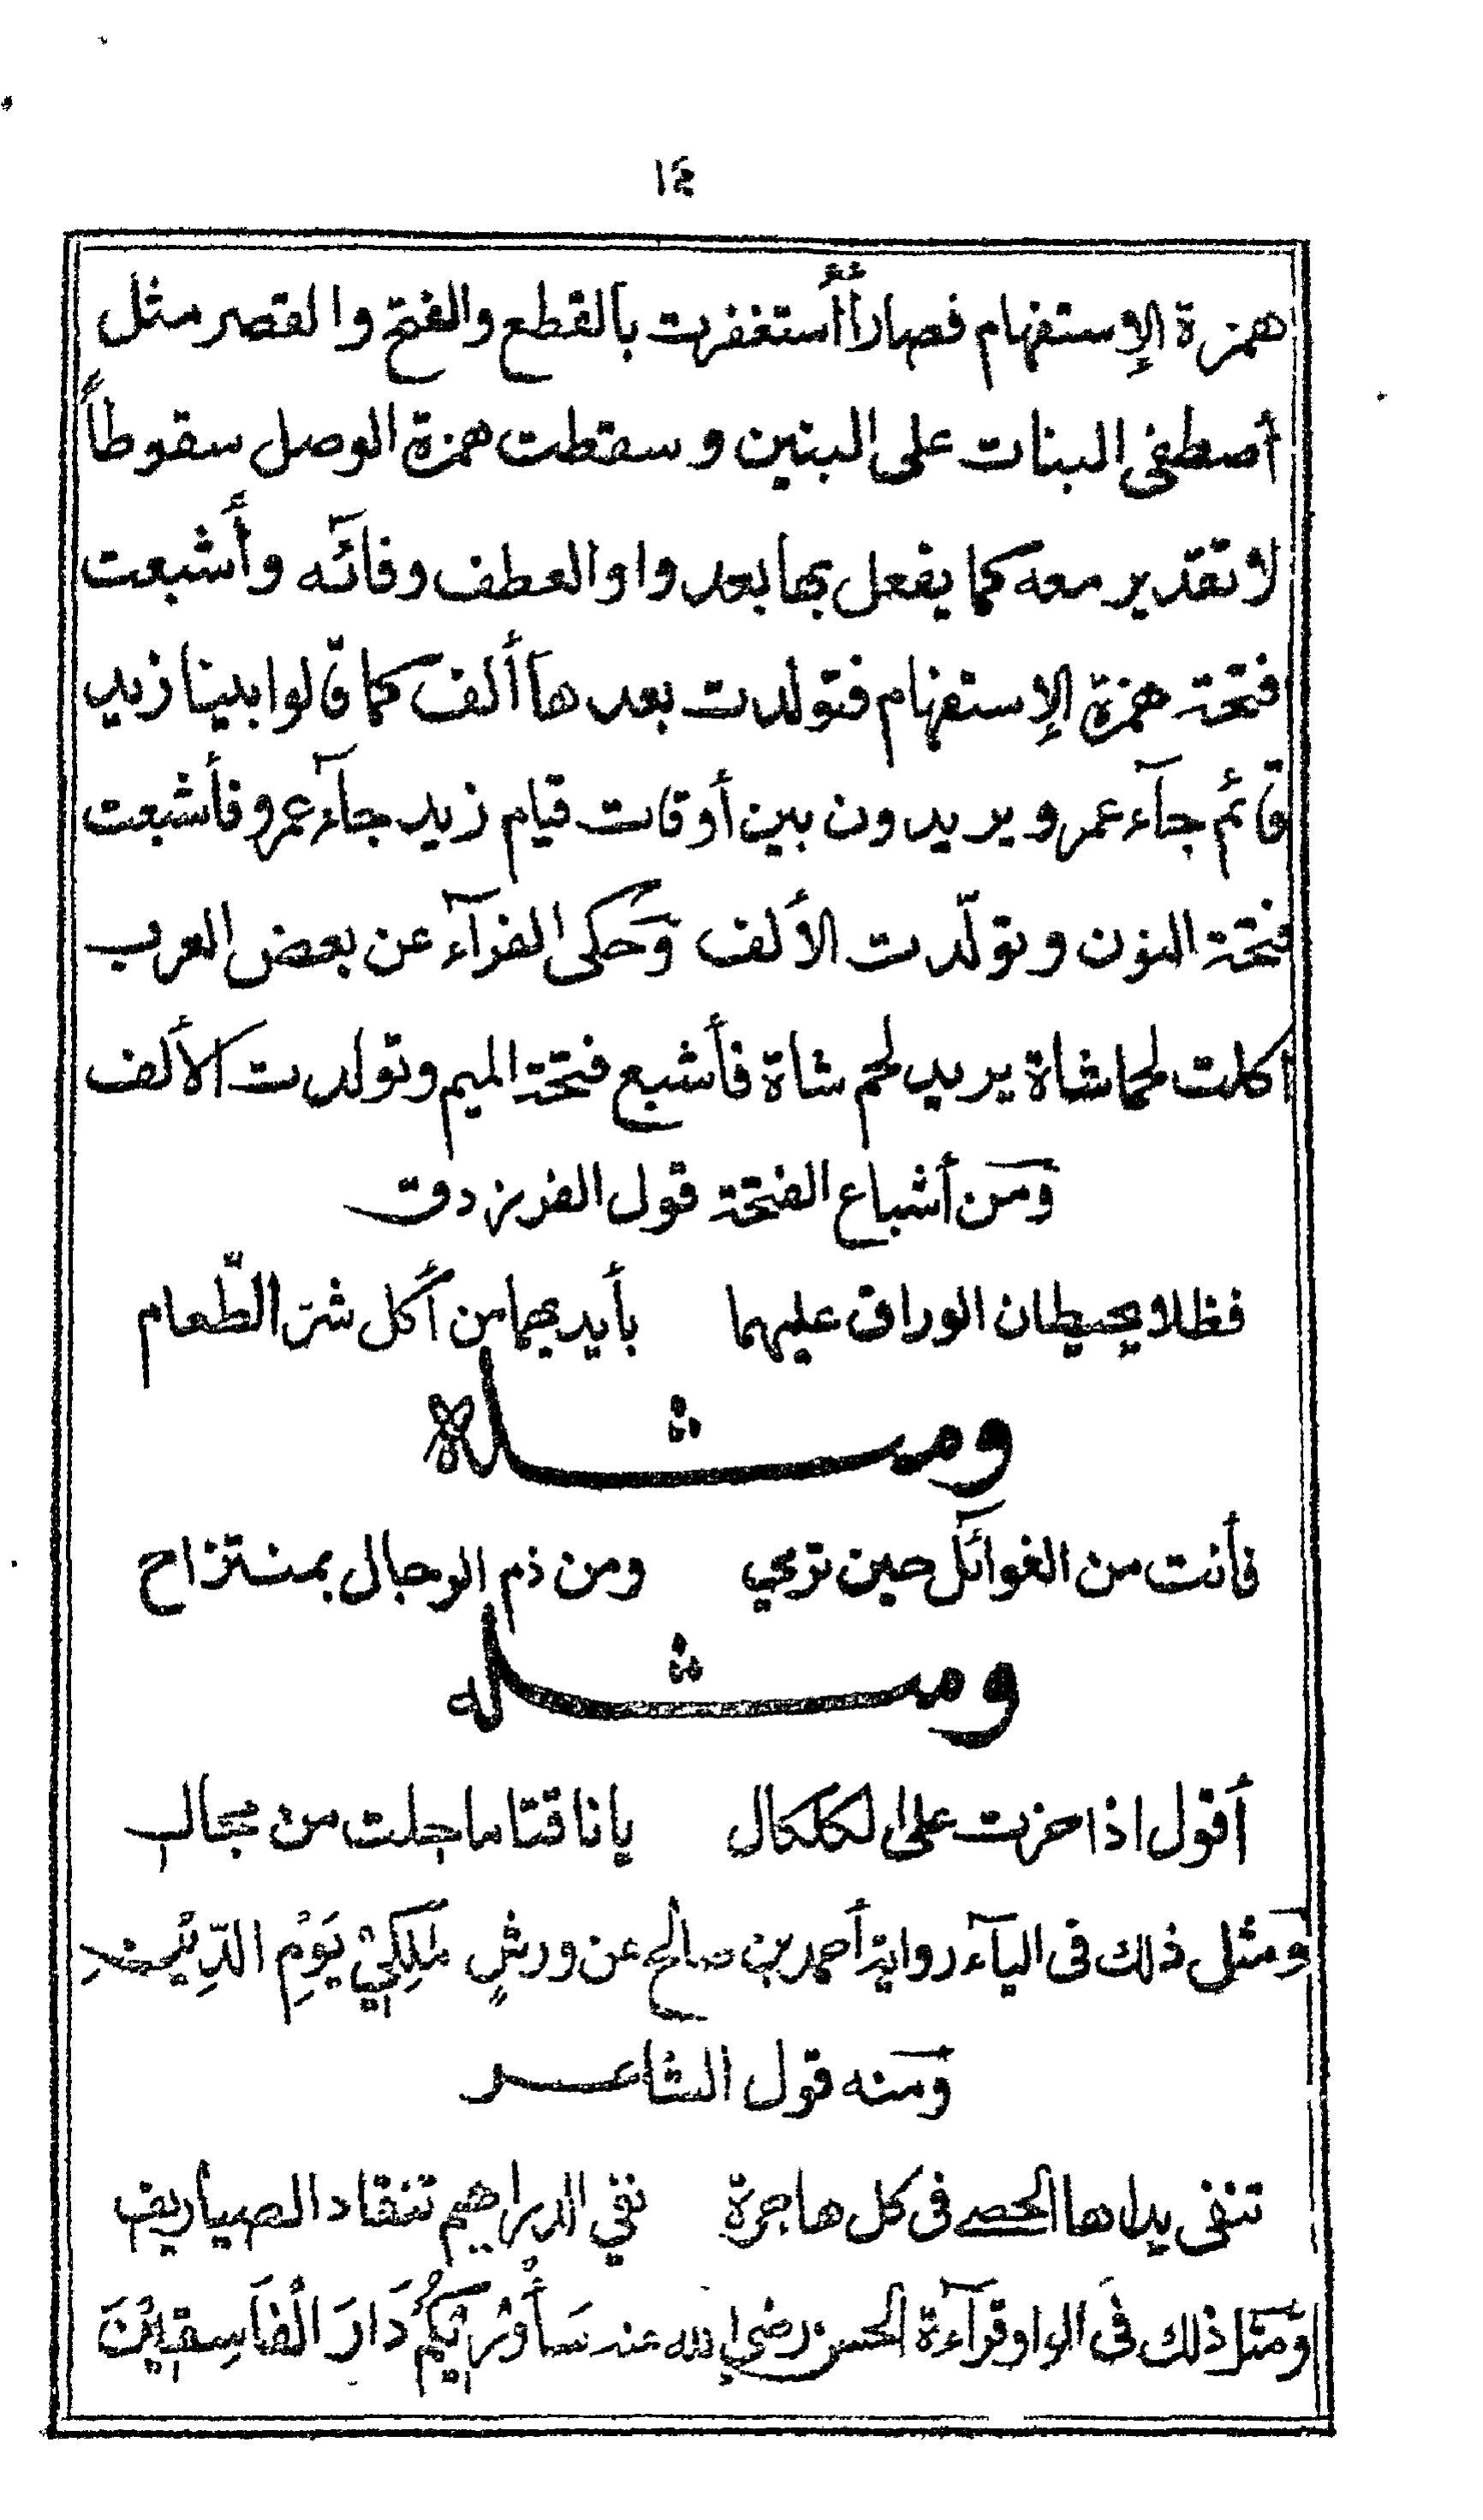 ١٤
همزة الإستفهام فصار أأستغفرت بالقطع والفتح والقصر مثل
أصطفى البنات على البنين وسقطت همزة الوصل سقوطاً
لا تقدير معه كما يفعل بها بعد واو العطف وفائه وأشبعت
فتحة همزة الإستفهام فتولدت بعدها ألف كما قالوا بينا زيد
قائم جآء عمرو يريدون بين أوقات قيام زيد جآء عمرو فأشبعت
فتحة النون وتولّدت الألف وحكى الفرآء عن بعض العرب
أكلت لحما شاة يريد لحم شاة فأشبع فتحة الميم وتولدت الألف
ومن أشباع الفتحة قول الفرزدق
فظلا يحيطان الوراق عليهما بأيديهما من أكل شرّ الطّعام
ومثله
فأنت من الغوائل حين ترمي ومن ذم الرجال بمنتزاح
ومثله
أقول اذا خرت على الكلكال يا ناقتا ما جلت من مجال
ومثل ذلك في اليآء رواية أحمد بن صالح عن ورشٍ مَلِكِيْ يَوْمِ الدِّيْنِ
ومنه قول الشاعر
تنفى يداها الحصے في كل هاجرة نفي الدراهيم تنقاد الصياريف
ومثل ذلك في الواو قرآءة الحسن رضي الله عنه سَأُوْرِيْكُمْ دَارَ الْفَاسِقِيْنَ